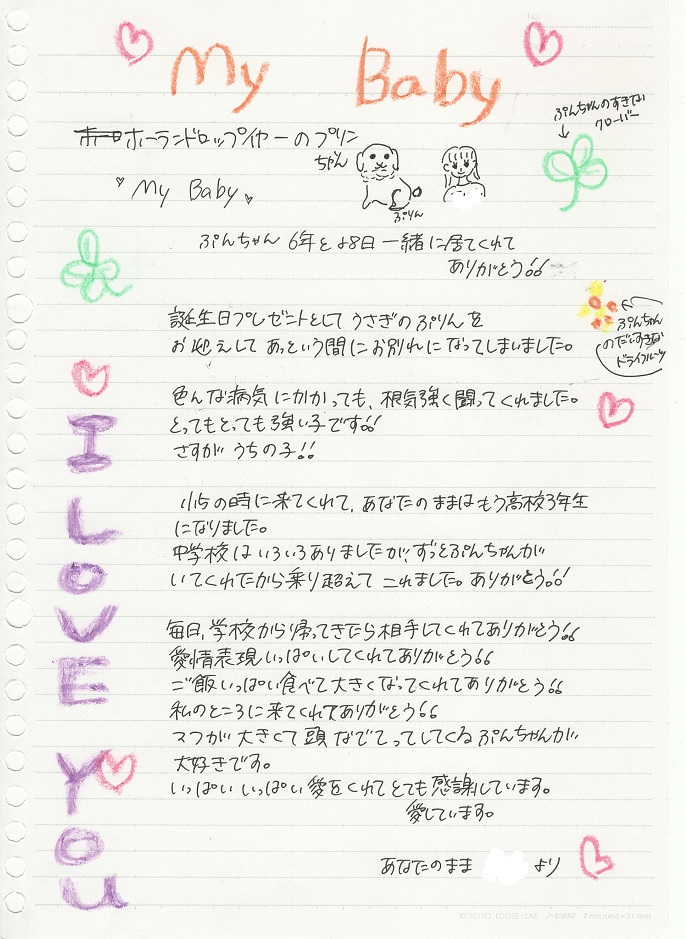 My Baby
ホーランドロップイヤーのプリン
ちゃん
My Baby
ぷりん
ぷんちゃんのすきな
クローバー
ぷんちゃん 6年と48日 一緒に居てくれて
ありがとう!!
誕生日プレゼントとして うさぎのぷりんを
お迎えして あっという間にお別れになってしまいました。
ぷんちゃん
のだいすきな
ドライフルーツ
色んな病気にかかっても、根気強く闘ってくれました。
とってもとっても強い子です!!
さすが うちの子!!
小5の時に来てくれて、あなたのままはもう高校3年生
になりました。
中学校はいろいろありましたが、ずっとぷんちゃんが
いてくれたから乗り越えて これました。ありがとう!!
毎日、学校から帰ってきたら相手してくれてありがとう!!
愛情表現いっぱいしてくれてありがとう!!
ご飯いっぱい食べて大きくなってくれてありがとう!!
私のところに来てくれてありがとう!!
マフが大きくて頭なでてってしてくるぷんちゃんが
大好きです。
いっぱいいっぱい愛をくれてとても感謝しています。
愛しています。
あなたのまま
より
I LOVE YOU
KOKUYO LOOSE-LEAF